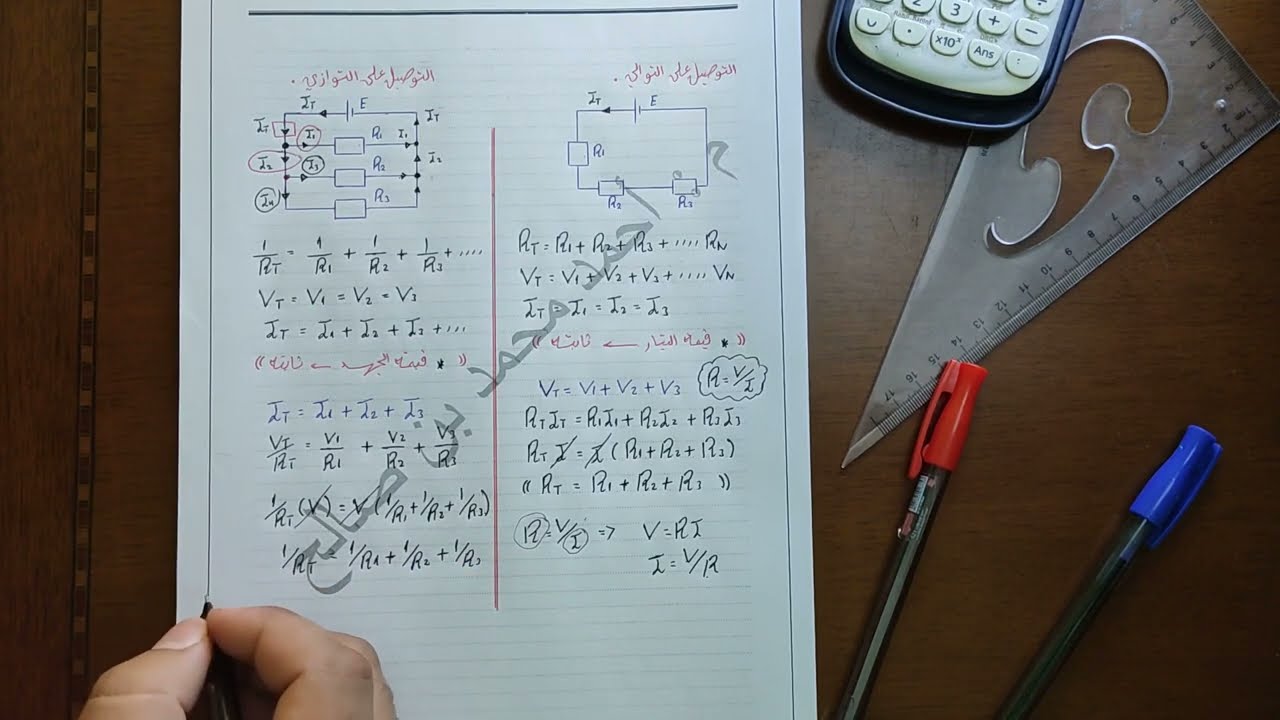 التوصيل على التوالي .
I_T E
R1
R2 R3
R_T = R1 + R2 + R3 + .... R_N
V_T = V1 + V2 + V3 + .... V_N
I_T = I1 = I2 = I3
(( * قيمة التيار ← ثابته ))
V_T = V1 + V2 + V3
R = V/I
R_T I_T = R1 I1 + R2 I2 + R3 I3
R_T I = I ( R1 + R2 + R3 )
(( R_T = R1 + R2 + R3 ))
R = V/I => V = RI
I = V/R
التوصيل على التوازي .
I_T E I_T
I_T I1 R1 I1
I2 I3 R2 I2
I4 R3
1/R_T = 1/R1 + 1/R2 + 1/R3 + ....
V_T = V1 = V2 = V3
I_T = I1 + I2 + I3 + ...
(( * قيمة الجهد ← ثابته ))
I_T = I1 + I2 + I3
V_T/R_T = V1/R1 + V2/R2 + V3/R3
1/R_T (V) = V (1/R1 + 1/R2 + 1/R3)
1/R_T = 1/R1 + 1/R2 + 1/R3
احمد محمد بن صالح
2 3 + −
. ×10ˣ Ans
1 2 7 8 9 10 11 12 13 14 15 16 17